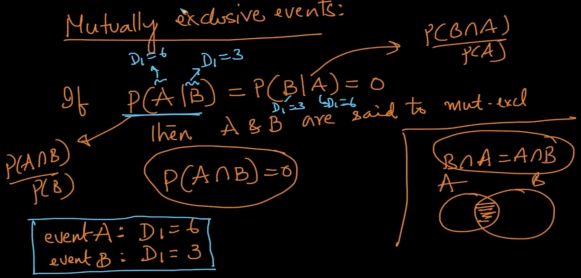 Mutually exclusive events:
D₁=6 D₁=3
P(B∩A)/P(A)
If P(A|B) = P(B|A) = 0
D₁=3 D₁=6
Then A & B are said to mut-excl
P(A∩B)/P(B)
P(A∩B)=0
B∩A = A∩B
A B
event A: D₁=6
event B: D₁=3